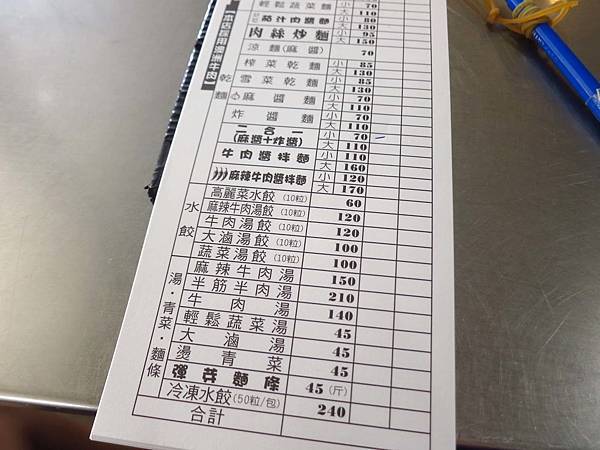 【本店採用澳洲牛肉】
輕鬆蔬菜麵 小 70
大 110
茄汁肉醬麵 小 80
大 130
肉絲炒麵 小 95
大 150
涼麵(麻醬) 70
乾麵
榨菜乾麵 小 85
大 130
雪菜乾麵 小 85
大 130
麻醬麵 小 70
大 110
炸醬麵 小 70
大 110
二合一 小 70
(麻醬+炸醬) 大 110
牛肉醬拌麵 小 110
大 160
麻辣牛肉醬拌麵 小 120
大 170
水餃
高麗菜水餃(10粒) 60
麻辣牛肉湯餃(10粒) 120
牛肉湯餃(10粒) 120
大滷湯餃(10粒) 100
蔬菜湯餃(10粒) 100
湯・青菜・麵條
麻辣牛肉湯 150
半筋半肉湯 210
牛肉湯 140
輕鬆蔬菜湯 45
大滷湯 45
燙青菜 45
強其麵條 45(斤)
冷凍水餃(50粒/包) 240
合計